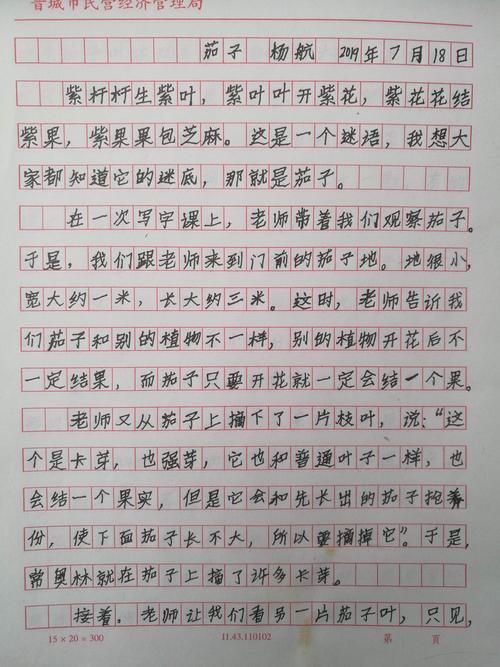 晋城市民营经济管理局
茄子 杨航 2019年7月18日
紫杆杆生紫叶，紫叶叶开紫花，紫花花结
紫果，紫果果包芝麻。这是一个迷语，我想大
家都知道它的迷底，那就是茄子。
在一次写字课上，老师带着我们观察茄子。
于是，我们跟老师来到门前的茄子地。地很小，
宽大约一米，长大约三米。这时，老师告诉我
们茄子和别的植物不一样，别的植物开花后不
一定结果，而茄子只要开花就一定会结一个果。
老师又从茄子上摘下了一片枝叶，说：“这
个是卡芽，也强芽，它也和普通叶子一样，也
会结一个果实，但是它会和先长出的茄子抢养
份，使下面茄子长不大，所以要摘掉它”。于是，
常奥林就在茄子上摘了许多卡芽。
接着，老师让我们看另一片茄子叶，只见，
15×20=300 11.43.110102 第 頁